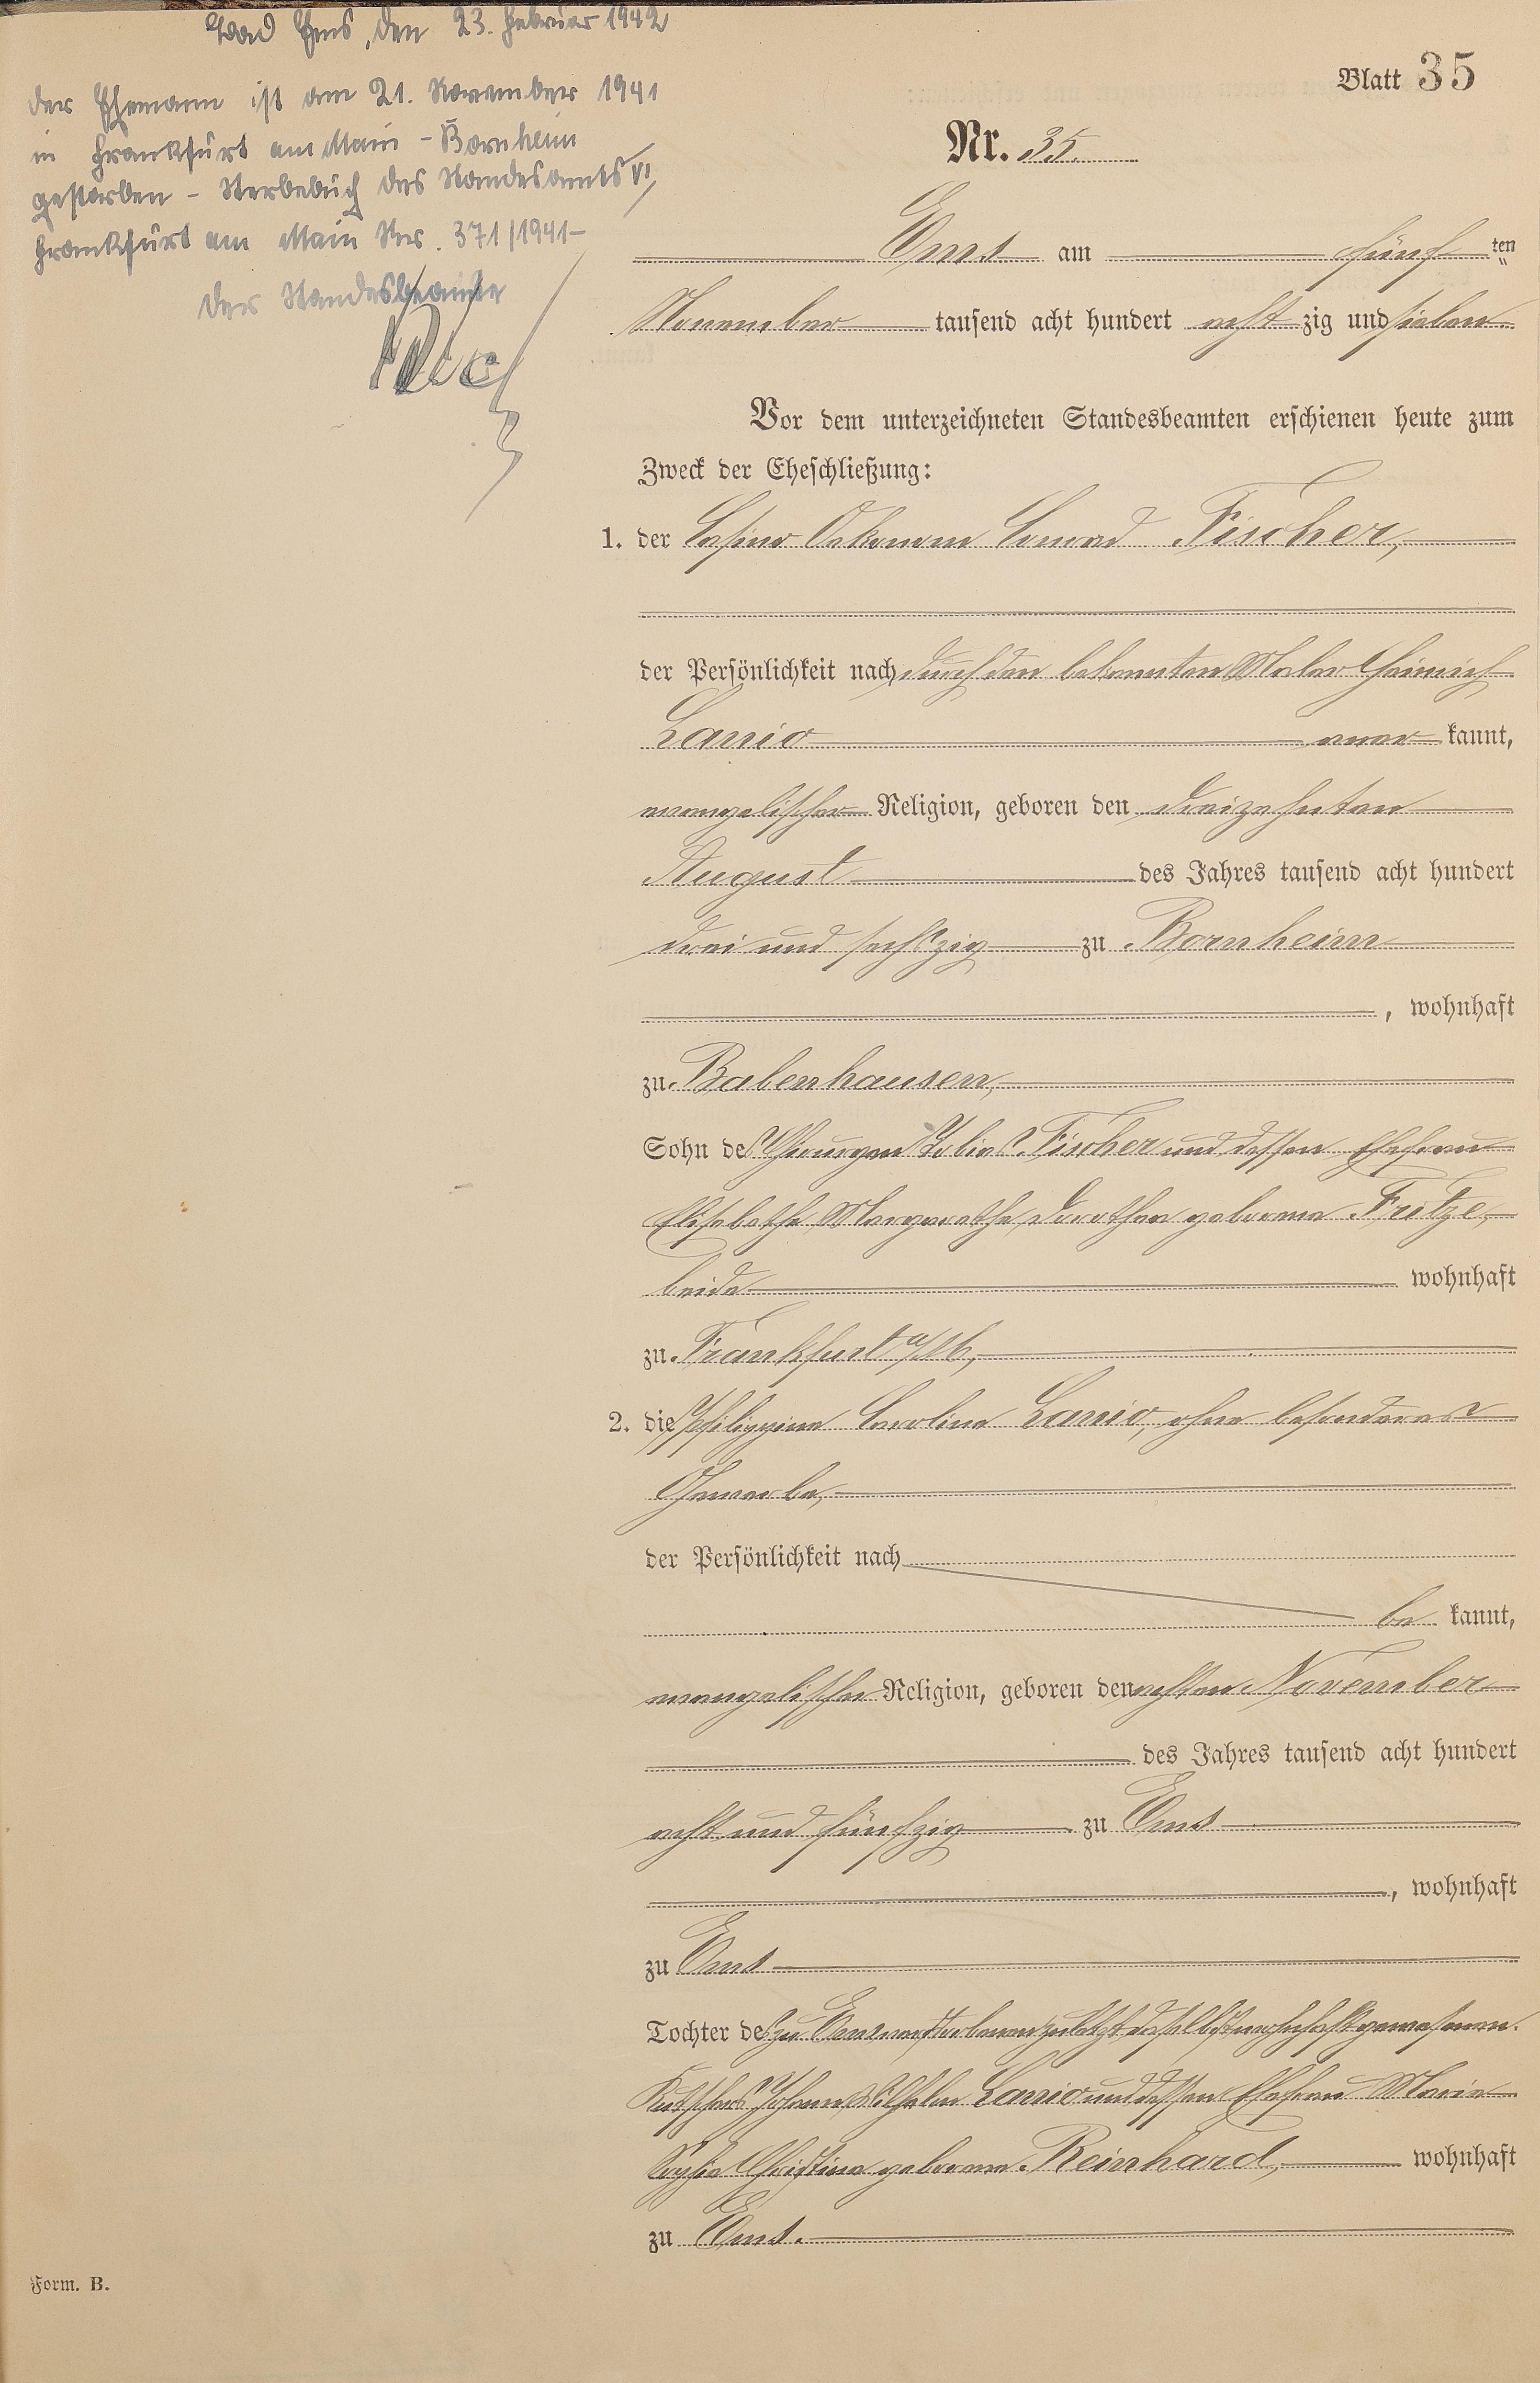 Bad Ems, den 23. Februar 1942
Der Ehemann ist am 21. November 1941
in Frankfurt am Main - Bornheim
gestorben - Sterbebuch des Standesamts VI,
Frankfurt am Main Nr. 371/1941 -
Der Standesbeamte
Blatt 35
Nr. 35.
Ems am fünf ten
November tausend acht hundert acht zig und sieben
Vor dem unterzeichneten Standesbeamten erschienen heute zum
Zweck der Eheschließung:
1. der Casino Oekonom Conrad Fischer,
der Persönlichkeit nach durch den bekannten Maler Heinrich
Lanio aner kannt,
evangelischer Religion, geboren den dreizehnten
August des Jahres tausend acht hundert
drei und sechszig zu Bornheim
, wohnhaft
zu Babenhausen,
Sohn des Chirurgen Tobias Fischer und dessen Ehefrau
Elisabethe Margarethe Dorothea geborene Fritze,
beide wohnhaft
zu Frankfurt a/M,
2. die Philippine Caroline Lanio, ohne besonderes
Gewerbe,
der Persönlichkeit nach
be kannt,
evangelischer Religion, geboren den achten November
des Jahres tausend acht hundert
acht und fünfzig zu Ems
, wohnhaft
zu Ems
Tochter des zu Ems verstorbenen zuletzt daselbst wohnhaft gewesenen
Kutschers Johann Wilhelm Lanio und dessen Ehefrau Marie
Sophie Christine geborene Reinhard, wohnhaft
zu Ems.
Form. B.